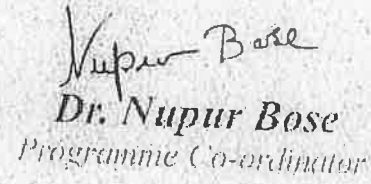 Nupur Bose
Dr. Nupur Bose
Programme Co-ordinator